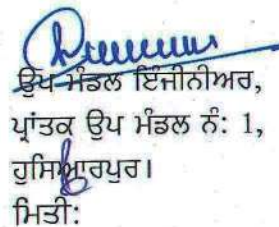 ਉਪ ਮੰਡਲ ਇੰਜੀਨੀਅਰ,
ਪ੍ਰਾਂਤਕ ਉਪ ਮੰਡਲ ਨੰ: 1,
ਹੁਸਿਆਰਪੁਰ।
ਮਿਤੀ: